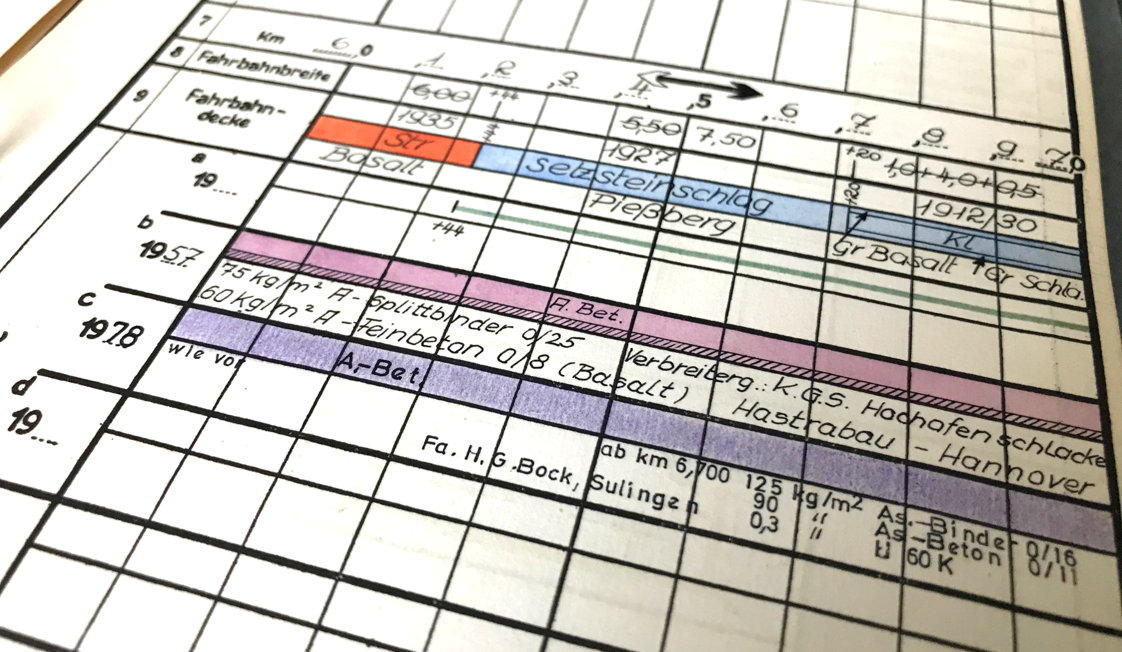 7
Km 6,0 ,1 ,2 ,3 ,4 ,5 ,6 ,7 ,8 ,9 7,0
8 Fahrbahnbreite 6,00 +44 5,50 7,50 +20 1,0+4,0+0,5
9 Fahrbahn-
decke
1935 1927 1912/30
Str Setzsteinschlag Kl
Basalt Pießberg Gr Basalt Gr Schla.
a
19....
+44
b
1957
A. Bet.
75 kg/m² A-Splittbinder 0/25 Verbreiterg.: K.G.S. Hochofenschlacke
60 kg/m² A-Feinbeton 0/8 (Basalt) Hastrabau - Hannover
c
1978
A.-Bet.
wie vor
ab km 6,700 125 kg/m2 As.-Binder 0/16
Fa. H.G. Bock, Sulingen 90 " As-Beton 0/11
0,3 " U 60 K
d
19...